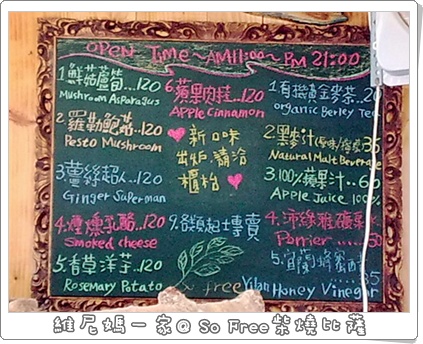 OPEN TIME~AM11:00~PM 21:00
1.鮮菇蘆筍...120
Mushroom Asparagus
2.羅勒鮑菇..120
Pesto Mushroom
3.薑絲超人..120
Ginger Superman
4.煙燻乳酪..120
Smoked cheese
5.香草洋芋..120
Rosemary Potato
6.蘋果肉桂..120
Apple Cinnamon
新口味
出炉.請洽
櫃枱
9.各類起士專賣
So free
1.有機黃金麥茶..20
organic Berley Tea
2.黑麥汁
35
Natural Malt Beverage
3.100%蘋果汁..60
Apple Juice 100%
4.沛綠雅礦泉水
Perrier......50
5.宜蘭蜂蜜醋
35
Yilan Honey Vinegar
維尼媽一家@ So Free柴燒比薩